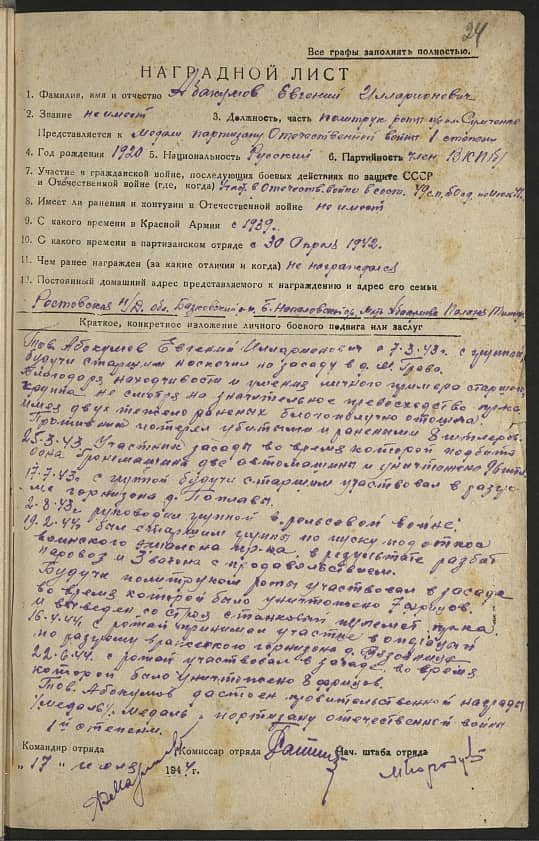 24
Все графы заполнять полностью.
НАГРАДНОЙ ЛИСТ
1. Фамилия, имя и отчество Абакумов Евгений Илларионович
2. Звание не имеет 3. Должность, часть политрук роты
Представляется к Медали партизану Отечественной войны 1 степени
4. Год рождения 1920 5. Национальность Русский 6. Партийность член ВКП(б)
7. Участие в гражданской войне, последующих боевых действиях по защите СССР
и Отечественной войне (где, когда)
8. Имеет ли ранения и контузии в Отечественной войне не имеет
9. С какого времени в Красной Армии с 1939г.
10. С какого времени в партизанском отряде с 30 Апреля 1942г.
11. Чем ранее награжден (за какие отличия и когда) не награждался
12. Постоянный домашний адрес представляемого к награждению и адрес его семьи
Ростовская н/Д. обл. Базковский
Краткое, конкретное изложение личного боевого подвига или заслуг
Тов. Абокумов Евгений Илларионович 7.3.43г. с группой
будучи старшим наскочил на засаду в д.
Благодоря находчивости и умения личного примера старшего,
группа не смотря на значительное превосходство пр-ка
имея двух тяжело раненых благополучно отошла.
Противник потерял убитыми и ранеными 8 гитлеров.
25.3.43 Участник засады во время которой подбита
одна бронемашина две автомашины и уничтожено
17.7.43г. с группой будучи старшим участвовал в разгро-
ме горнизона д. Поплавы.
2.8.43г руководил группой в рельсовой войне.
19.2.44г. был старшим группы по пуску под откос
воинского эшалона пр-ка, в результате разбит
паровоз и 3 вагона с продовольствием.
Будучи политруком роты участвовал в засаде
во время которой было уничтожено 7 фрицов.
и выведен со строя станковый пулемет пр-ка.
16.4.44 с ротой принимал участие в операции
по разгрому вражеского горнизона д.
22.6.44. с ротой участвовал в засаде во время
которой было уничтожено 8 фрицов.
Тов. Абокумов достоен правительственной награды
/медаль/. Медаль „партизану отечественной войны
1й степени.
Командир отряда Комиссар отряда Нач. штаба отряда
„17" июля 1944 г.